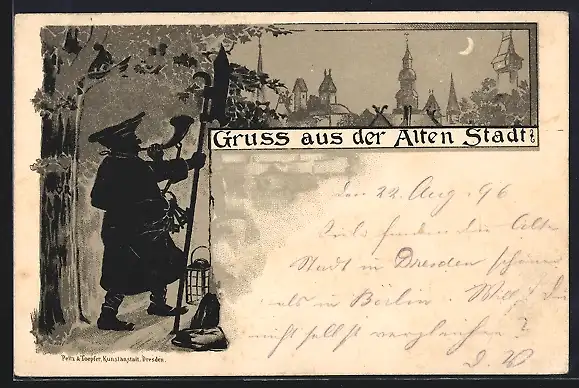 Gruss aus der Alten Stadt!
den 22. Aug. 96.
Viele finden die Alte
Stadt in Dresden schöner
als in Berlin. Willst Du
nicht selbst vergleichen?
Petz & Toepfer, Kunstanstalt, Dresden.